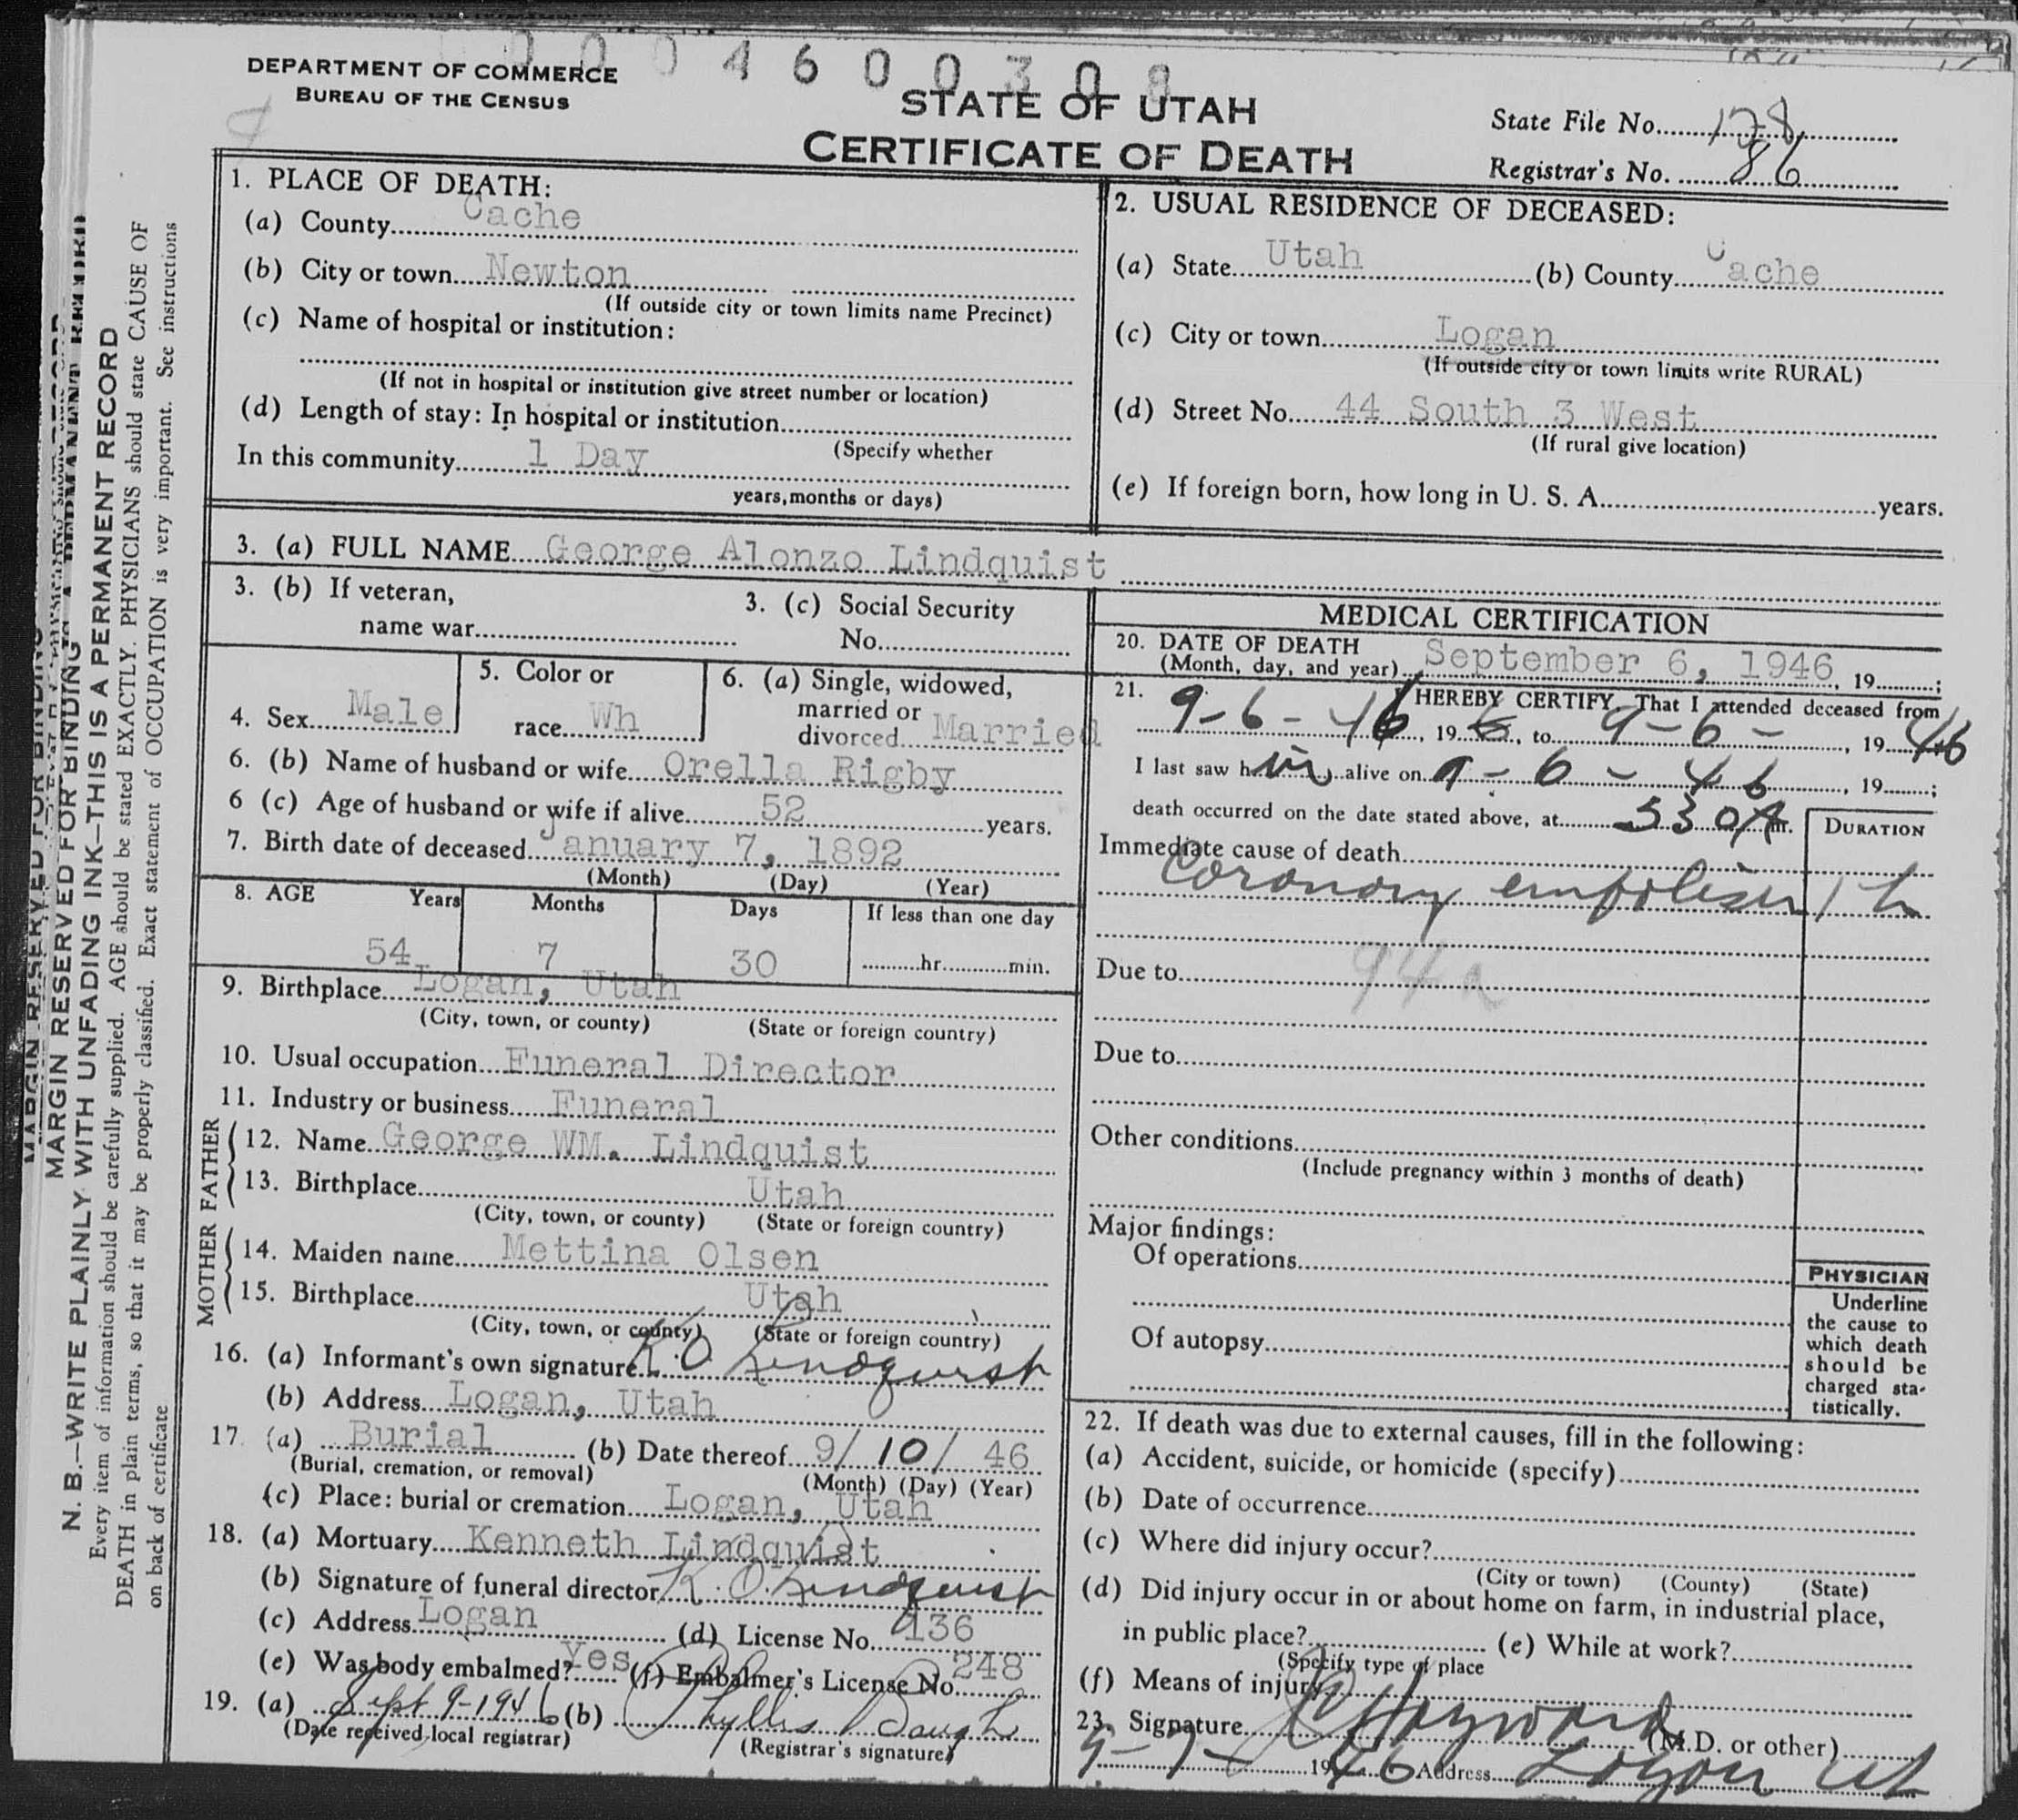 0004600308
DEPARTMENT OF COMMERCE
BUREAU OF THE CENSUS
STATE OF UTAH
CERTIFICATE OF DEATH
State File No. 128
Registrar's No. 86
MARGIN RESERVED FOR BINDING
N. B.—WRITE PLAINLY WITH UNFADING INK—THIS IS A PERMANENT RECORD
Every item of information should be carefully supplied. AGE should be stated EXACTLY. PHYSICIANS should state CAUSE OF
DEATH in plain terms, so that it may be properly classified. Exact statement of OCCUPATION is very important. See instructions
on back of certificate
1. PLACE OF DEATH:
(a) County Cache
(b) City or town Newton
(If outside city or town limits name Precinct)
(c) Name of hospital or institution:
(If not in hospital or institution give street number or location)
(d) Length of stay: In hospital or institution
(Specify whether
In this community 1 Day
years, months or days)
2. USUAL RESIDENCE OF DECEASED:
(a) State Utah (b) County Cache
(c) City or town Logan
(If outside city or town limits write RURAL)
(d) Street No. 44 South 3 West
(If rural give location)
(e) If foreign born, how long in U. S. A. years.
3. (a) FULL NAME George Alonzo Lindquist
3. (b) If veteran,
name war
3. (c) Social Security
No.
4. Sex Male
5. Color or
race Wh
6. (a) Single, widowed,
married or
divorced Married
6. (b) Name of husband or wife Orella Rigby
6 (c) Age of husband or wife if alive 52 years.
7. Birth date of deceased January 7, 1892
(Month) (Day) (Year)
8. AGE Years Months Days If less than one day
54 7 30 hr. min.
9. Birthplace Logan, Utah
(City, town, or county) (State or foreign country)
10. Usual occupation Funeral Director
11. Industry or business Funeral
FATHER
12. Name George WM. Lindquist
13. Birthplace Utah
(City, town, or county) (State or foreign country)
MOTHER
14. Maiden name Mettina Olsen
15. Birthplace Utah
(City, town, or county) (State or foreign country)
16. (a) Informant's own signature K. O. Lindquist
(b) Address Logan, Utah
17. (a) Burial (b) Date thereof 9/ 10/ 46
(Burial, cremation, or removal) (Month) (Day) (Year)
(c) Place: burial or cremation Logan, Utah
18. (a) Mortuary Kenneth Lindquist
(b) Signature of funeral director K. O. Lindquist
(c) Address Logan (d) License No. 136
(e) Was body embalmed? Yes (f) Embalmer's License No. 248
19. (a) Sept 9-1946 (b) Phyllis Baugh
(Date received local registrar) (Registrar's signature)
MEDICAL CERTIFICATION
20. DATE OF DEATH
(Month, day, and year) September 6, 1946, 19 ;
21. I HEREBY CERTIFY, That I attended deceased from
9-6-46, 19 , to 9-6-, 1946
I last saw him alive on 9-6-46, 19 ;
death occurred on the date stated above, at 530A m.
DURATION
Immediate cause of death
Coronary embolism 1 h
Due to 94a
Due to
Other conditions
(Include pregnancy within 3 months of death)
Major findings:
Of operations
Of autopsy
PHYSICIAN
Underline
the cause to
which death
should be
charged sta-
tistically.
22. If death was due to external causes, fill in the following:
(a) Accident, suicide, or homicide (specify)
(b) Date of occurrence
(c) Where did injury occur?
(City or town) (County) (State)
(d) Did injury occur in or about home on farm, in industrial place,
in public place? (e) While at work?
(Specify type of place
(f) Means of injury
23. Signature Hayward (M.D. or other)
9-7- 1946 Address Logan Ut